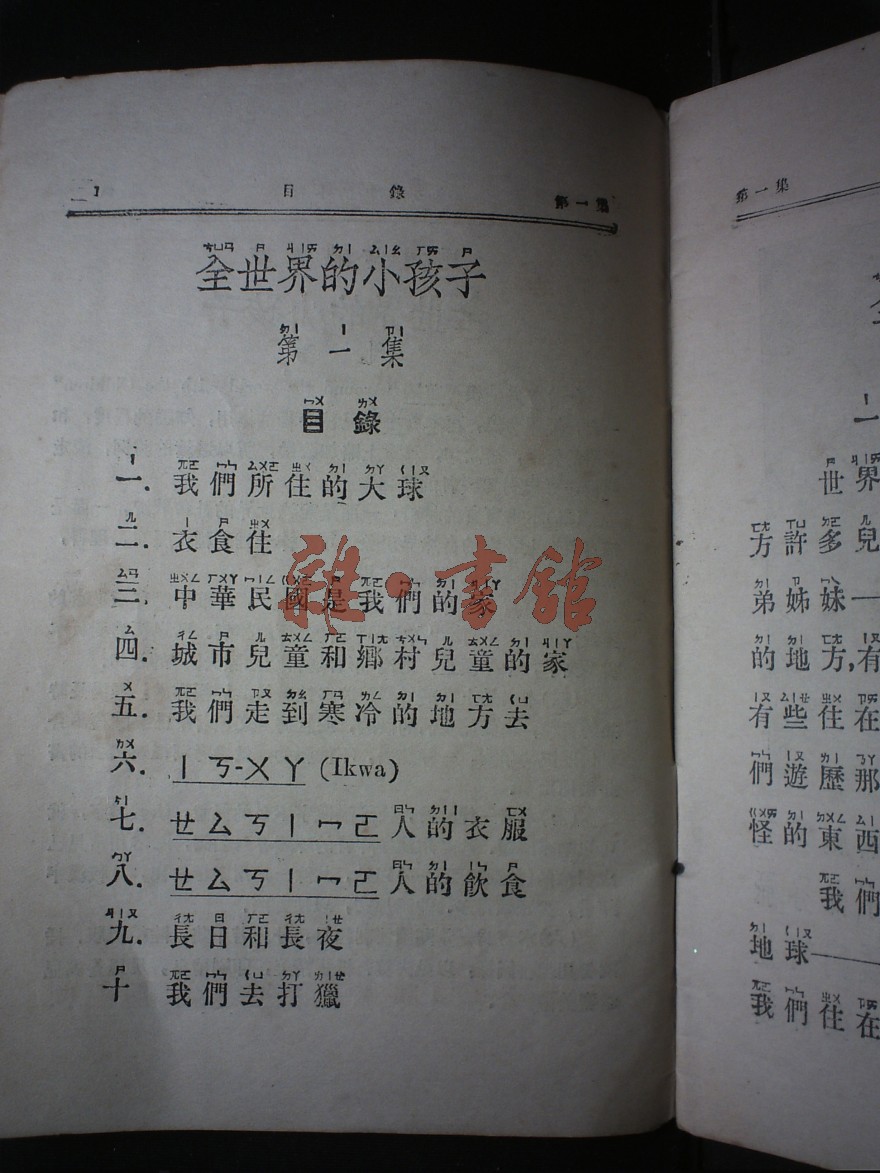 1 目錄 第一集
全世界的小孩子
第一集
目錄
一. 我們所住的大球
二. 衣食住
三. 中華民國是我們的家
四. 城市兒童和鄉村兒童的家
五. 我們走到寒冷的地方去
六. ㄧㄎ-ㄨㄚ (Ikwa)
七. ㄝㄙㄎㄧㄇㄛ人的衣服
八. ㄝㄙㄎㄧㄇㄛ人的飲食
九. 長日和長夜
十 我們去打獵
雜·書館
第一集
一
世界
方許多兒
弟姊妹—
的地方,有
有些住在
們遊歷那
怪的東西
我們
地球—
我們住在